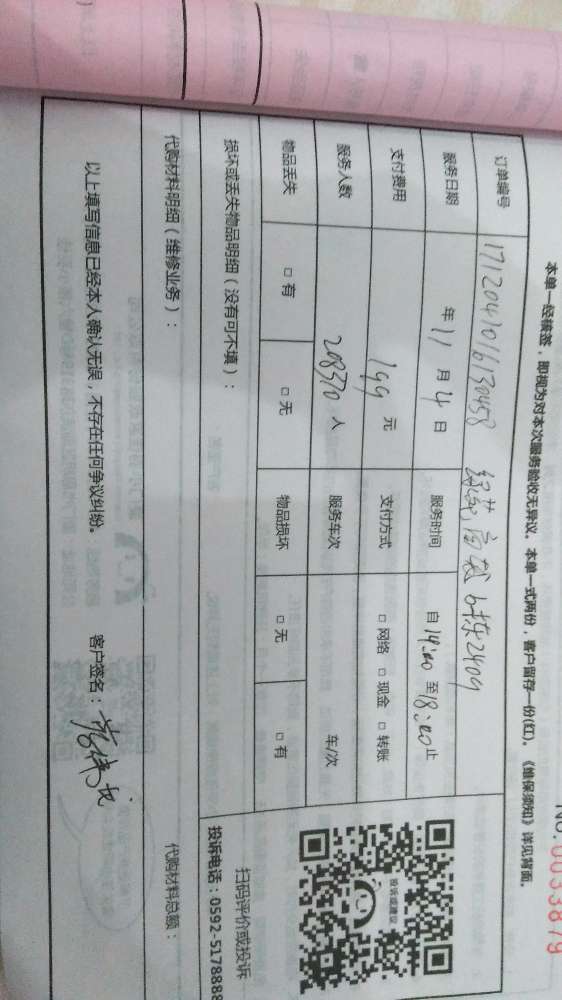 No.0033879
本单一经核签，即视为对本次服务验收无异议。本单一式两份，客户留存一份(红)。《维保须知》详见背面。
订单编号 1712041016130458 6栋2409
服务日期 年 11 月 4 日 服务时间 自 14:00 至 18:00 止
支付费用 199 元 支付方式 □ 网络 □ 现金 □ 转账
服务人数 208370 人 服务车次 车/次
物品丢失 □ 有 □ 无 物品损坏 □ 无 □ 有
损坏或丢失物品明细（没有可不填）：
投诉或建议
扫码评价或投诉
投诉电话：0592-5178888
代购材料明细（维修业务）： 代购材料总额：
以上填写信息已经本人确认无误，不存在任何争议纠纷。 客户签名：